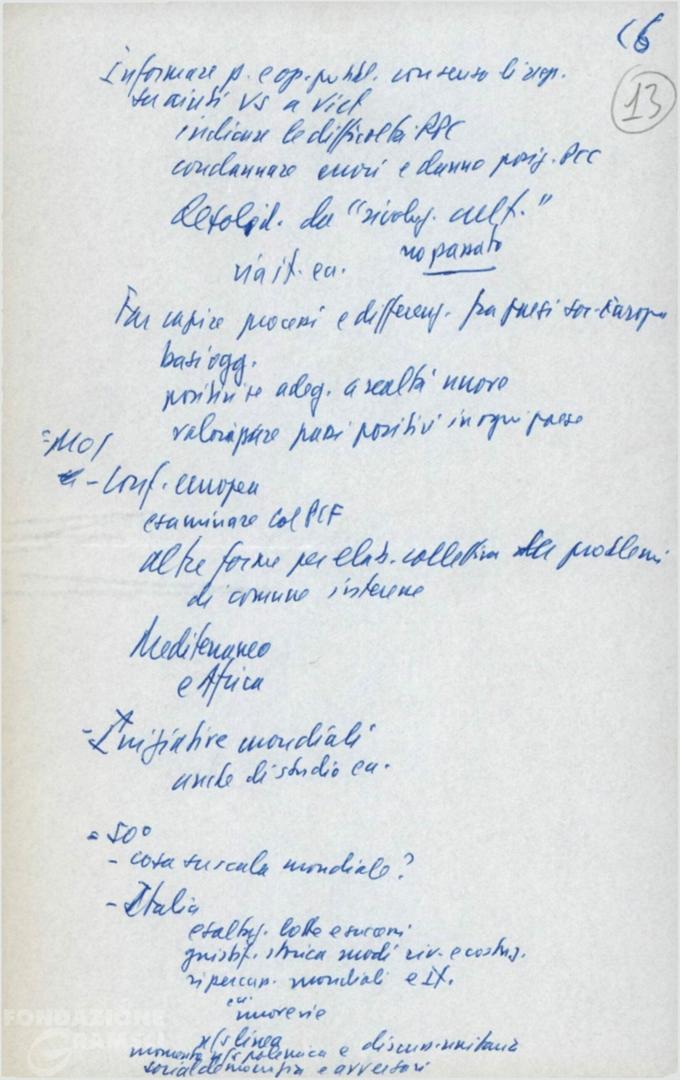 C6
13
Informare p. e op. pubbl. consenso
su aiuti vs a Viet
indicare le difficoltà PCC
condannare errori e danno posiz. PCC
da "rivoluz. cult."
no passato
via it. ecc.
Far capire processi e differenz. fra paesi soc. Europa
basi ogg.
positivi se adeg. a realtà nuove
valorizzare passi positivi in ogni paese
= MOI
- Conf. europea
esaminare col PCF
altre forme per elab. collettiva problemi
di comune interesse
Mediterraneo
e Africa
- Iniziative mondiali
anche di studio ecc.
= 50°
- cosa su scala mondiale?
- Italia
esaltaz. lotte e successi
giustif. storica modi riv. e costruz.
ripercuss. mondiali e it.
nuove vie
ns linea
momento ns polemica e discuss. unitaria
socialdemocrazia e avversari
FONDAZIONE
GRAMSCI